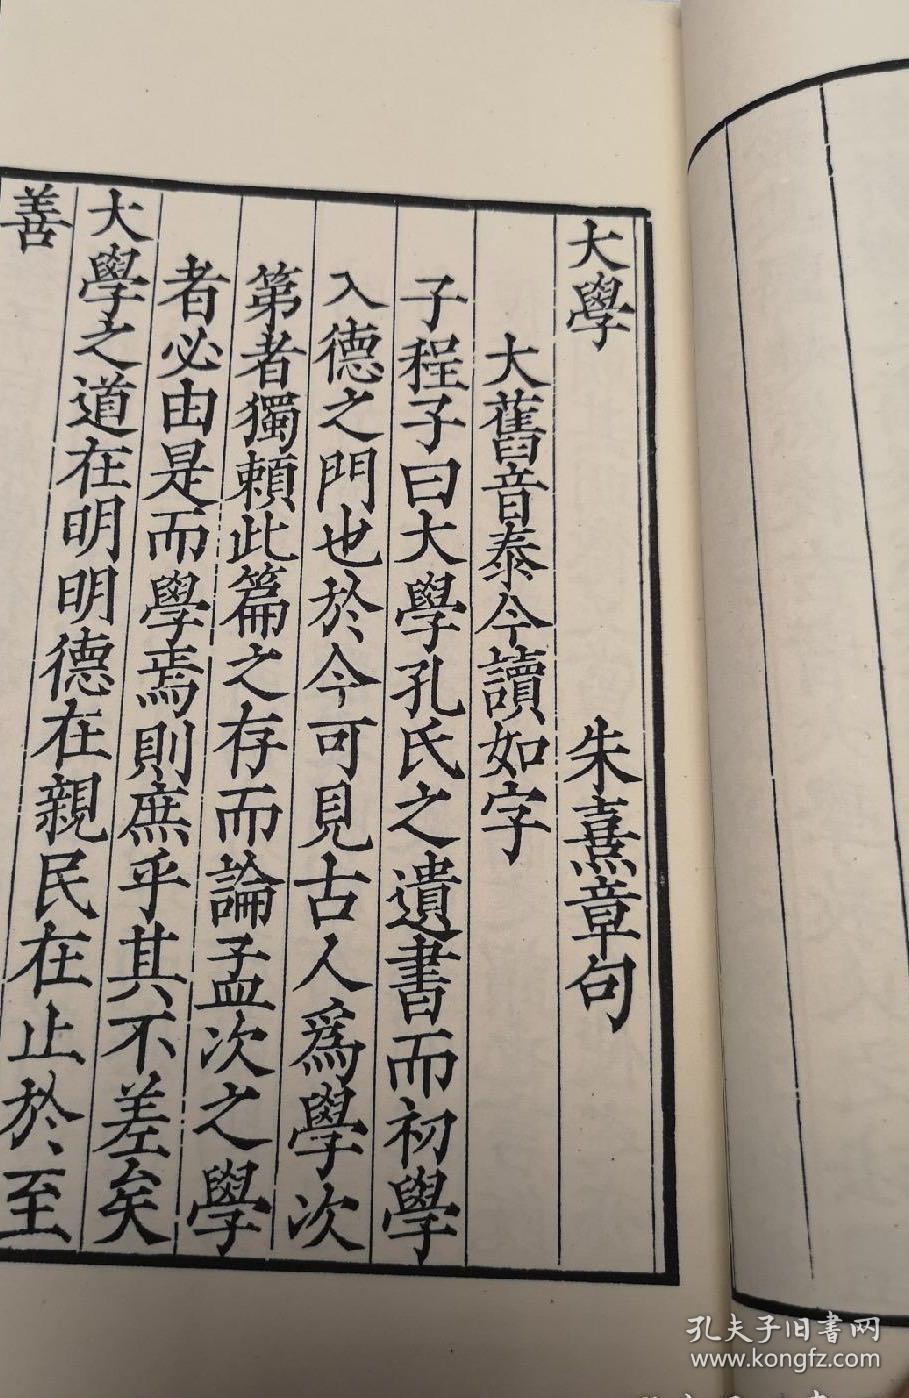 大學 朱熹章句
大舊音泰今讀如字
子程子曰大學孔氏之遺書而初學
入德之門也於今可見古人爲學次
第者獨賴此篇之存而論孟次之學
者必由是而學焉則庶乎其不差矣
大學之道在明明德在親民在止於至
善
孔夫子旧书网
www.kongfz.com